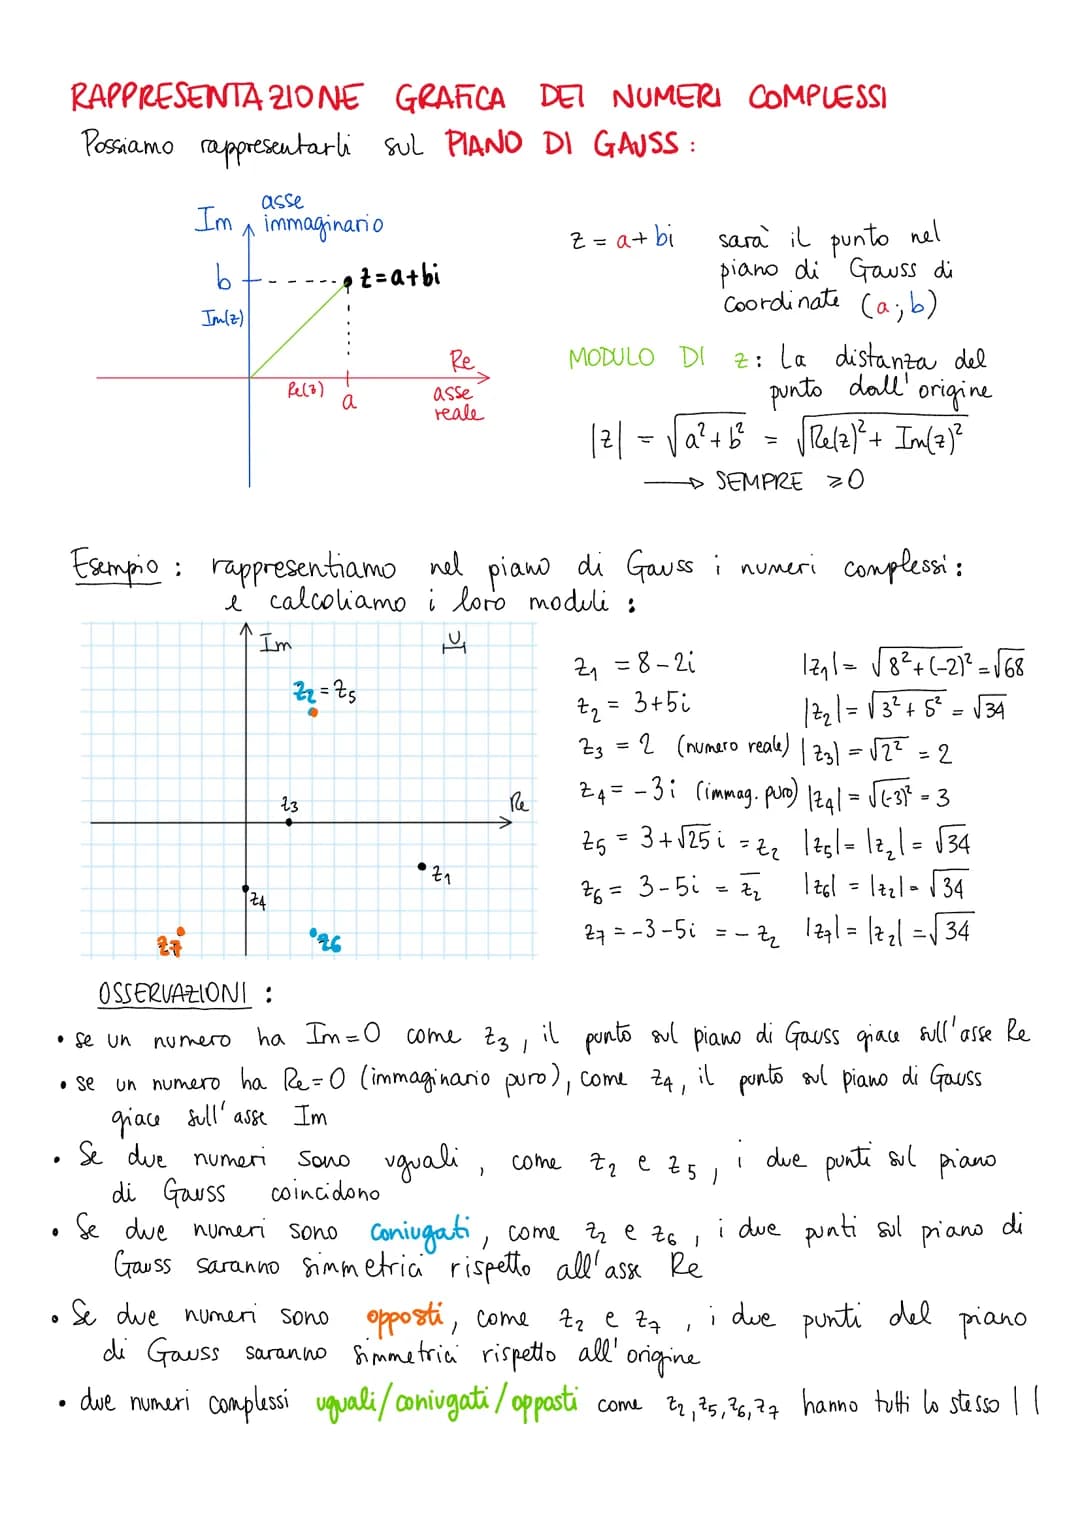 RAPPRESENTAZIONE GRAFICA DEI NUMERI COMPLESSI
Possiamo rappresentarli sul PIANO DI GAUSS :
Im asse immaginario
b
z=a+bi
Im(z)
Re
Re(z)
a
asse reale
z = a+bi sarà il punto nel
piano di Gauss di
coordinate (a;b)
MODULO DI z: la distanza del
punto dall'origine
|z| = √(a²+b²) = √(Re(z)²+ Im(z)²)
→ SEMPRE ⩾0
Esempio : rappresentiamo nel piano di Gauss i numeri complessi :
e calcoliamo i loro moduli :
Im
u
z₂=z₅
z₃
Re
z₁
z₄
z₇
z₆
z₁ = 8-2i |z₁| = √(8²+(-2)²) = √68
z₂ = 3+5i |z₂| = √(3²+5²) = √34
z₃ = 2 (numero reale) |z₃| = √2² = 2
z₄ = -3i (immag. puro) |z₄| = √(-3)² = 3
z₅ = 3+√25 i = z₂ |z₅| = |z₂| = √34
z₆ = 3-5i = z̅₂ |z₆| = |z₂| = √34
z₇ = -3-5i = -z₂ |z₇| = |z₂| = √34
OSSERVAZIONI :
• se un numero ha Im=0 come z₃, il punto sul piano di Gauss giace sull'asse Re
• se un numero ha Re=0 (immaginario puro), come z₄, il punto sul piano di Gauss
giace sull'asse Im
• Se due numeri sono uguali, come z₂ e z₅, i due punti sul piano
di Gauss coincidono
• Se due numeri sono coniugati, come z₂ e z₆, i due punti sul piano di
Gauss saranno simmetrici rispetto all'asse Re
• Se due numeri sono opposti, come z₂ e z₇, i due punti del piano
di Gauss saranno simmetrici rispetto all'origine
• due numeri complessi uguali/coniugati/opposti come z₂,z₅,z₆,z₇ hanno tutti lo stesso | |